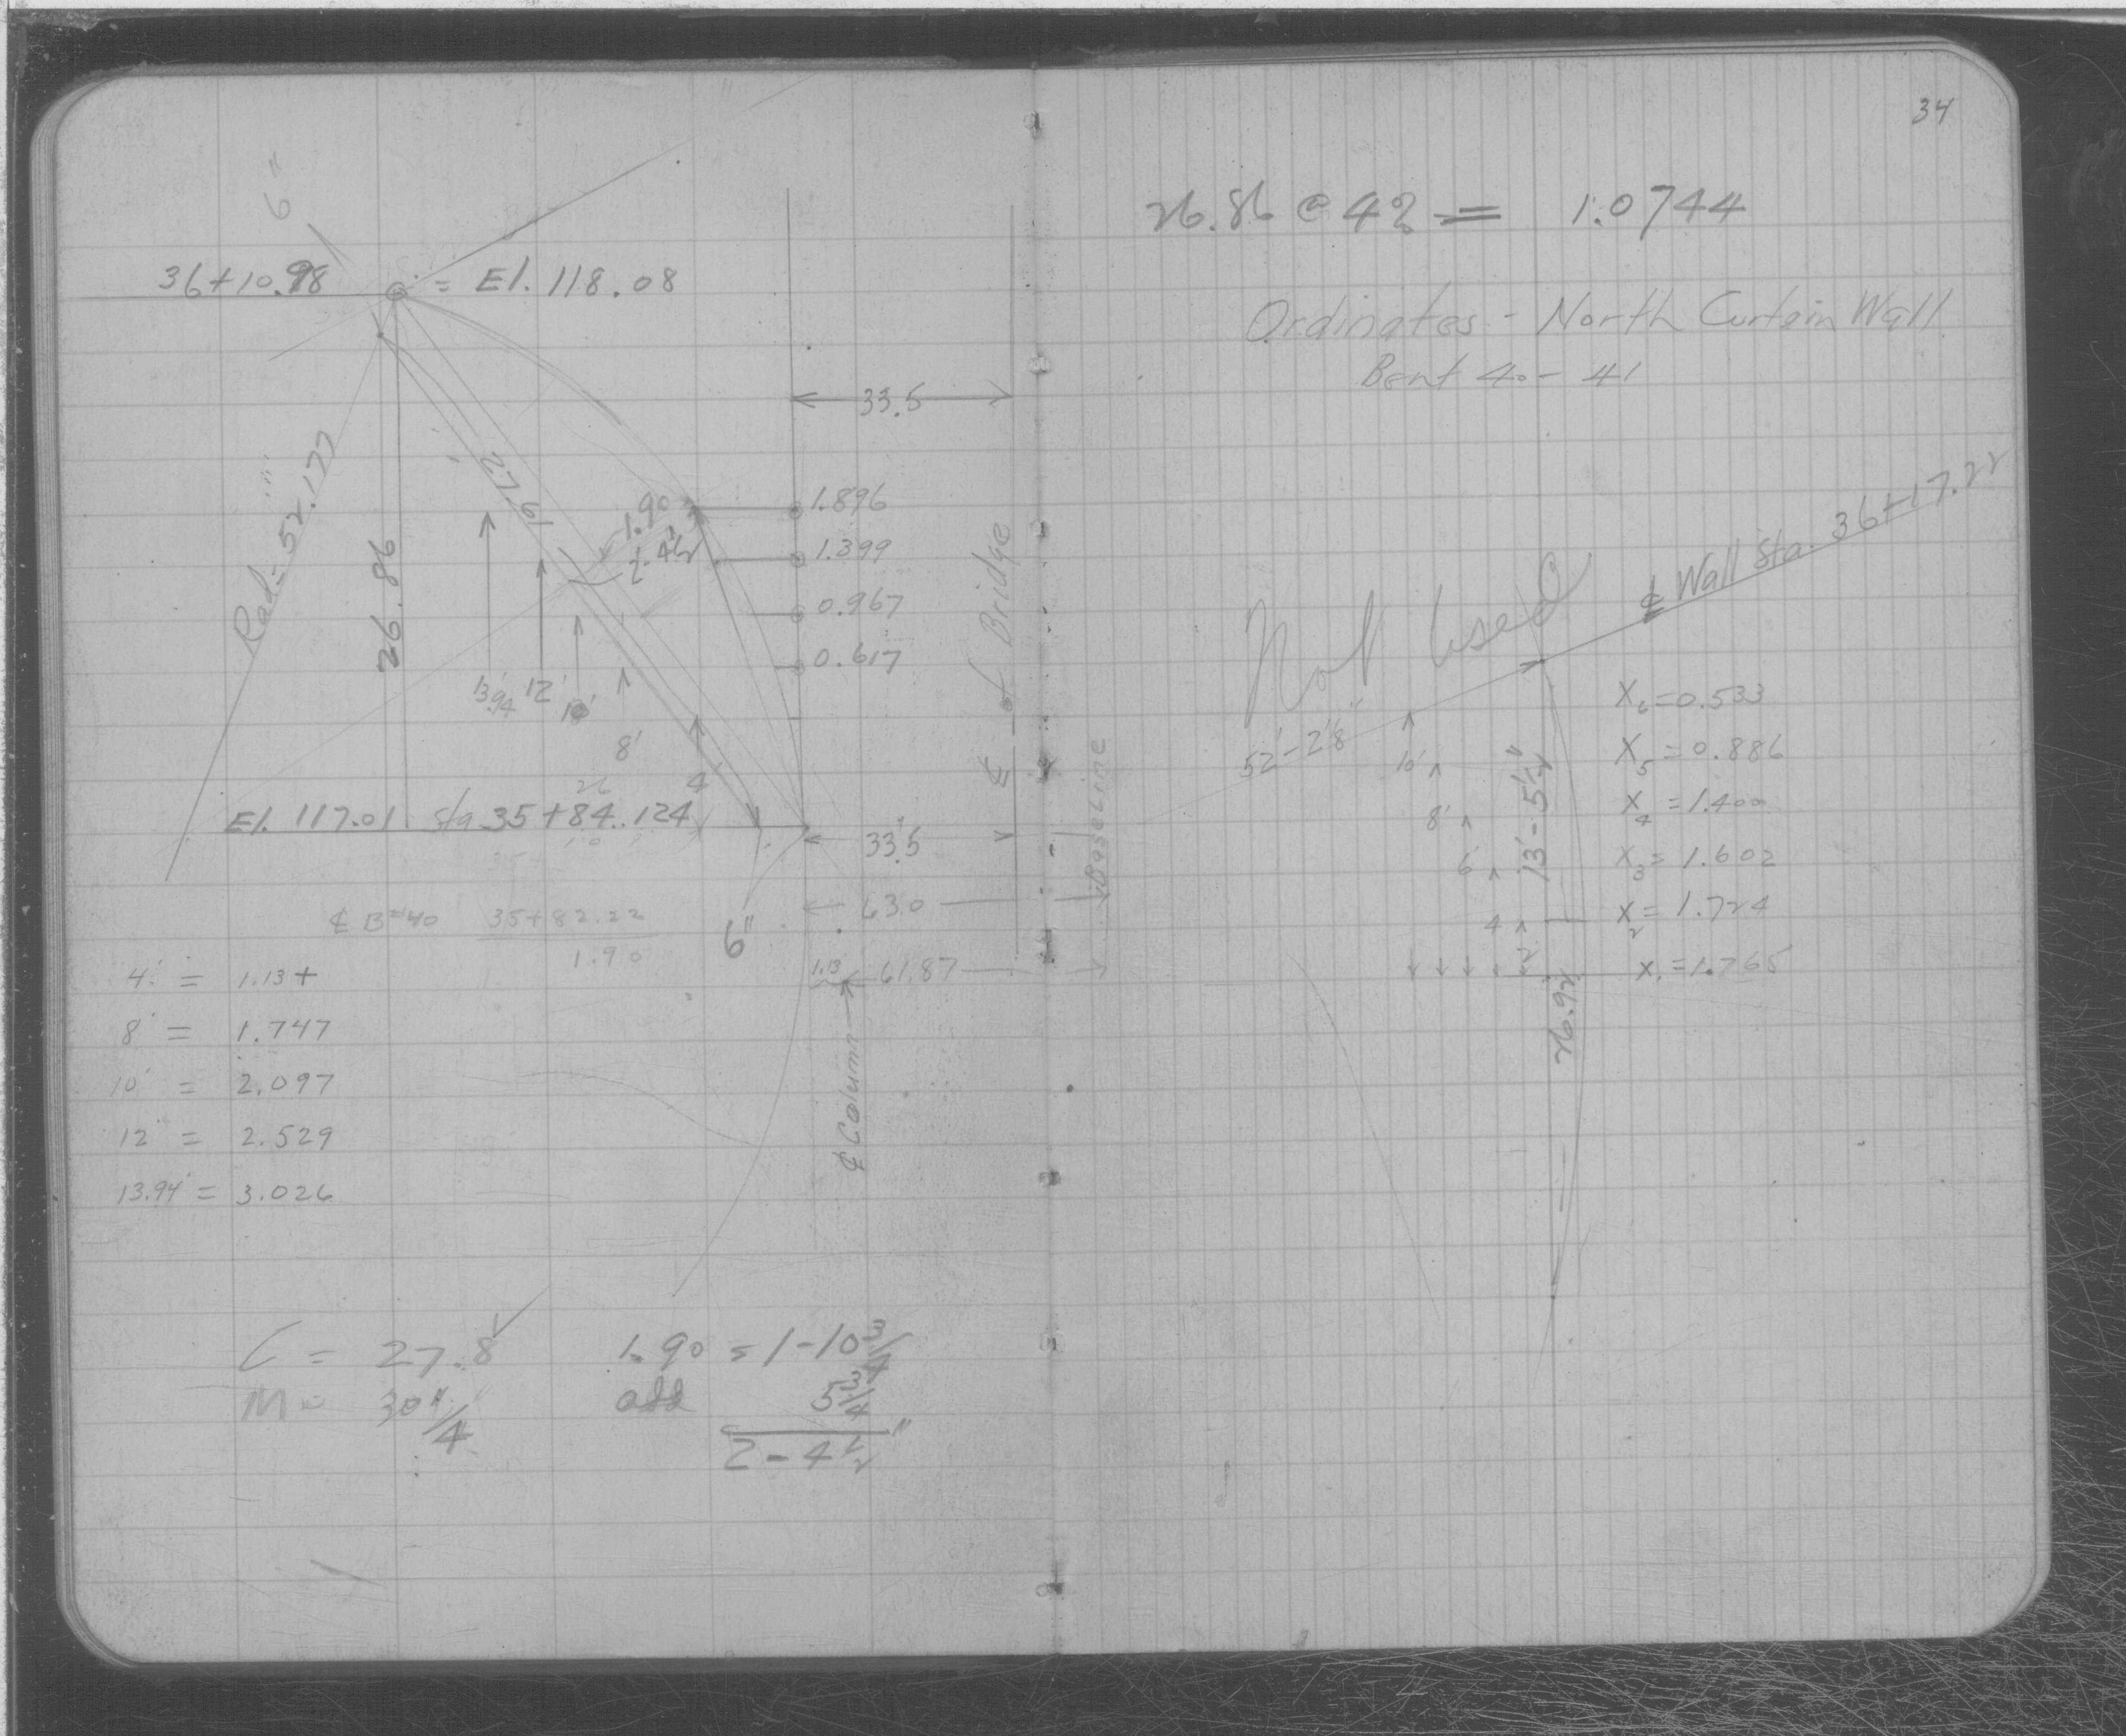 6"
36+10.98 = El. 118.08
33.5
Rad = 52.177
26.86
27.61
1.90
2'-4½
1.896
1.399
0.967
0.617
13.94' 12' 10'
8'
4'
℄ of Bridge
Baseline
26
El. 117.01 Sta 35+84.124
33.5
63.0
℄ B=40 35+82.22
1.90
6"
1.13 61.87
℄ Column
4' = 1.13+
8' = 1.747
10' = 2.097
12' = 2.529
13.94' = 3.026
C = 27.8'
M = 30"/4
1.90 = 1-10¾
add 5¾
2-4½"
34
26.86 @ 4% = 1.0744
Ordinates - North Curtain Wall
Bent 40-41
℄ Wall Sta. 36+17.22
Not Used
52'-2⅛"
13'-5½"
10'
8'
6'
4
2
26.92
X₆=0.533
X₅=0.886
X₄=1.400
X₃=1.602
X₂=1.724
X₁=1.765